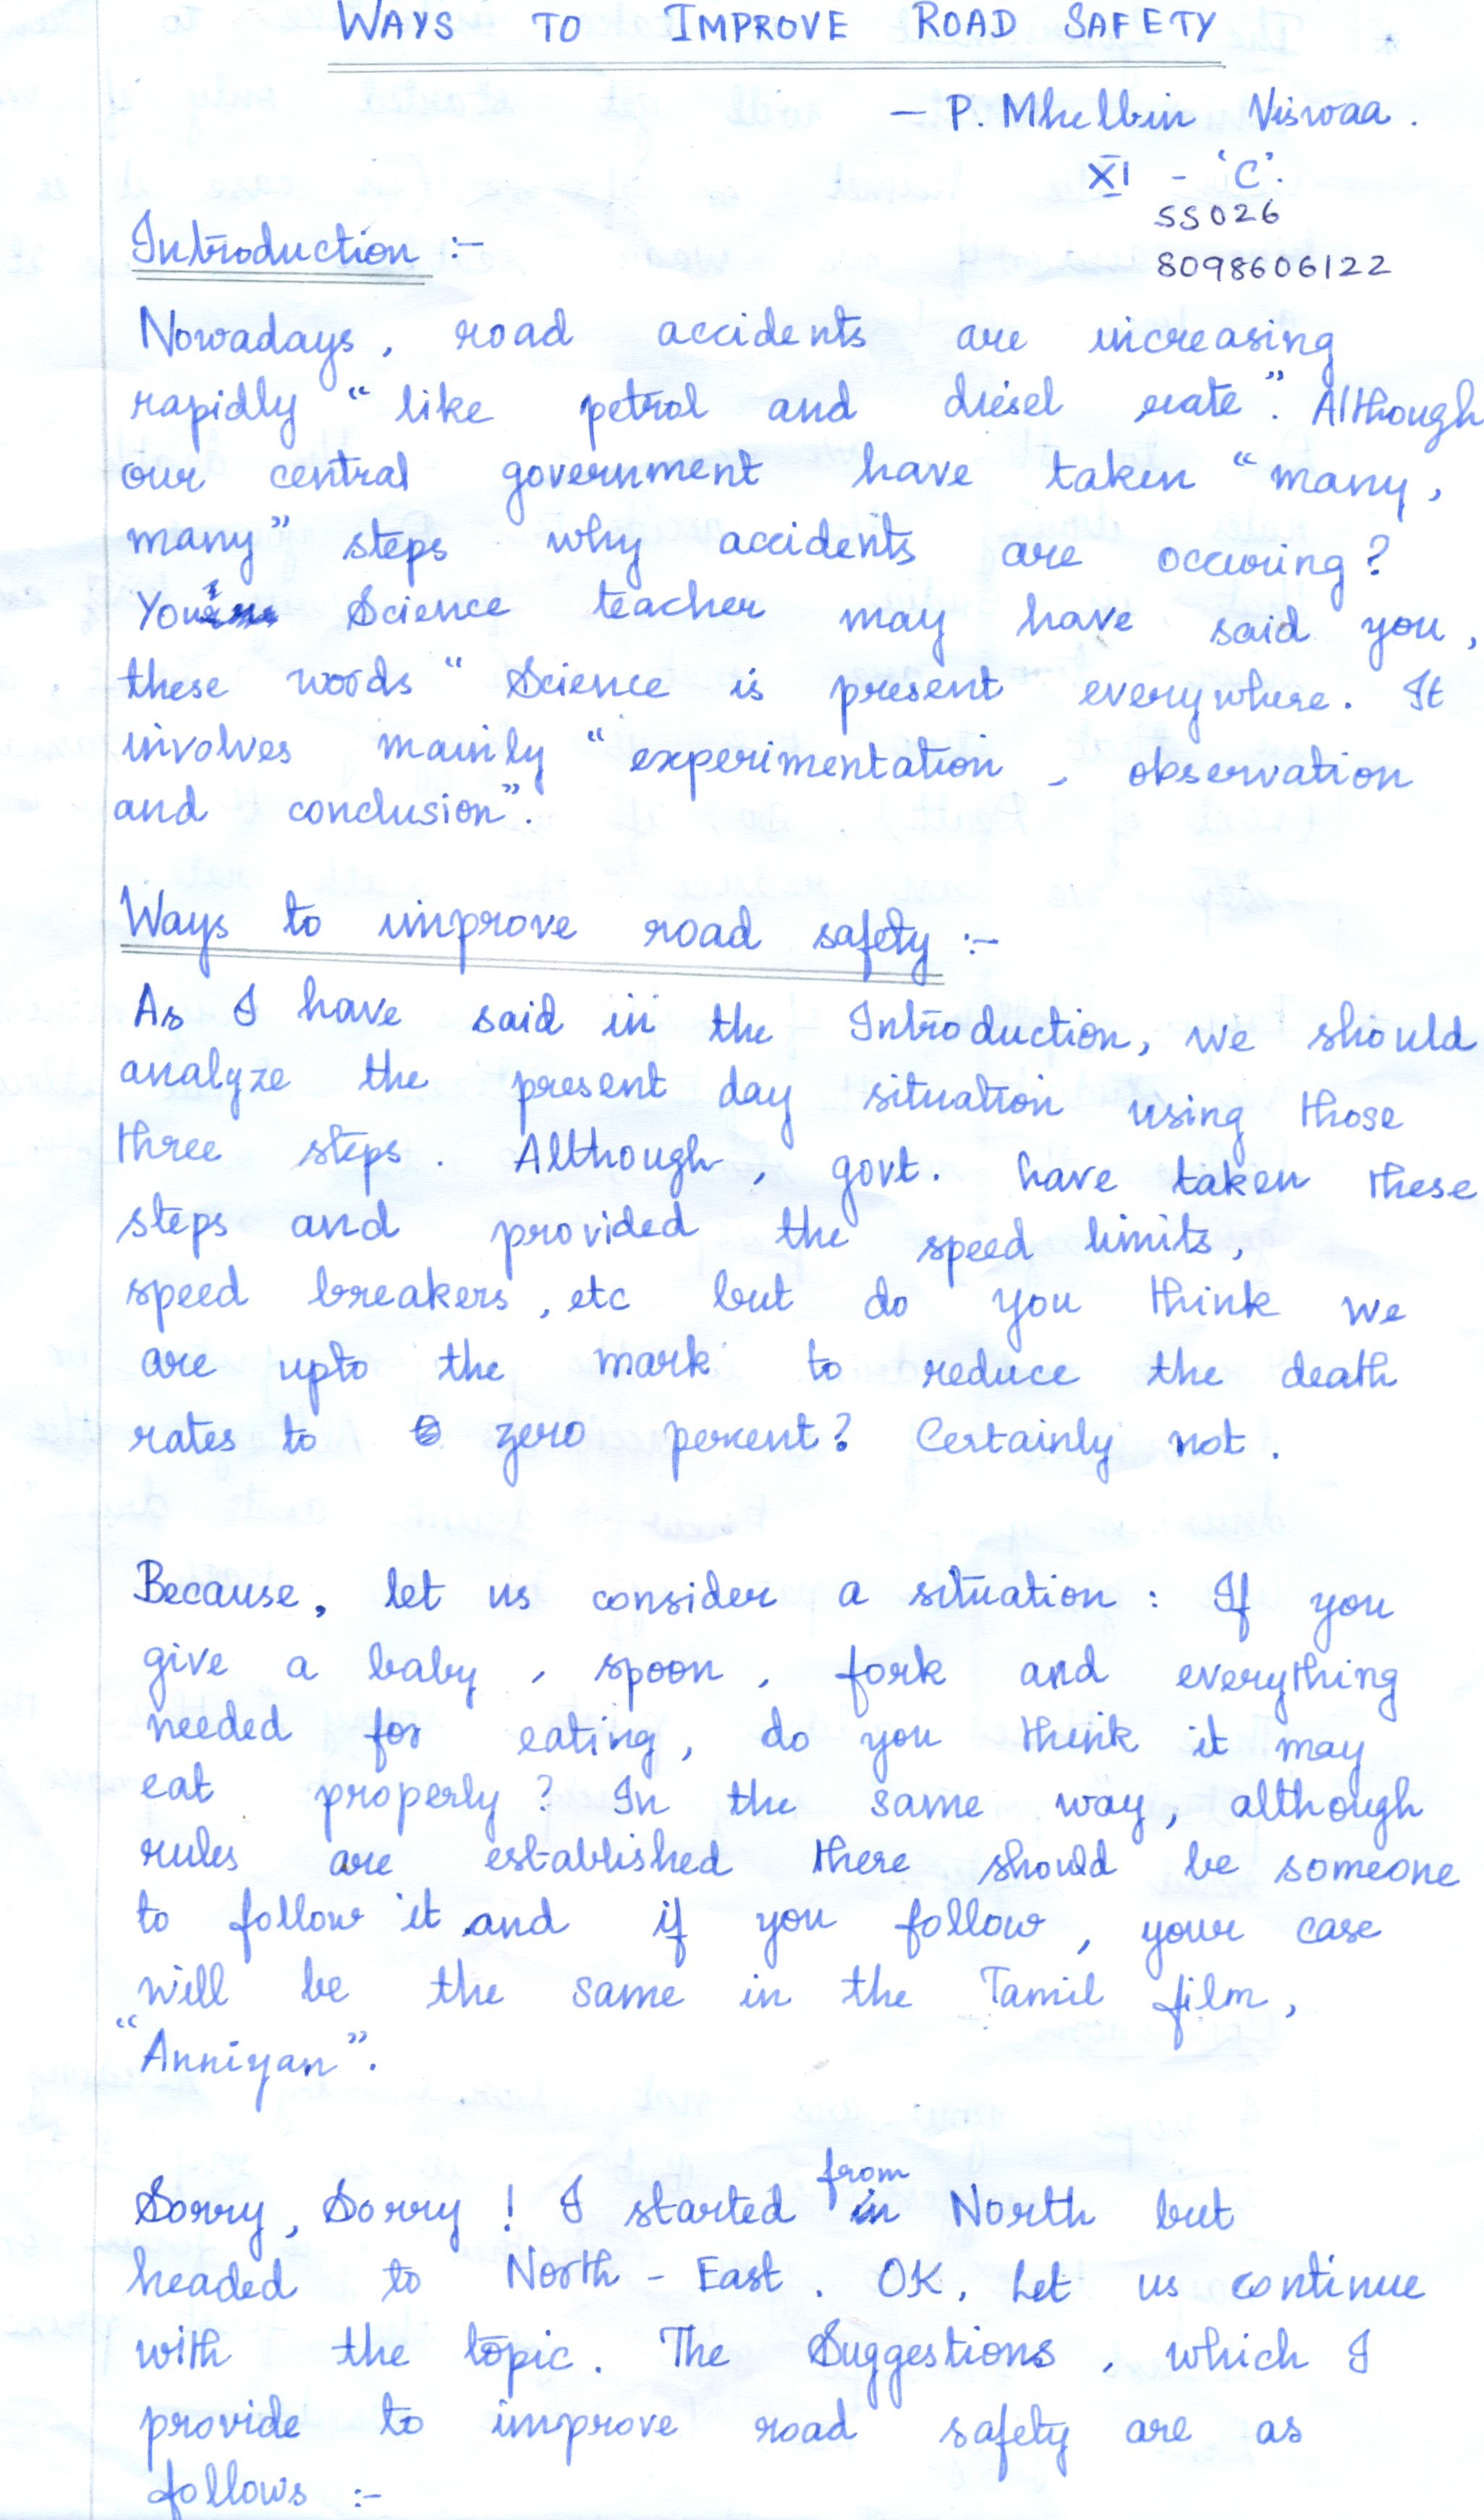 WAYS TO IMPROVE ROAD SAFETY
– P. Mhelbin Viswaa.
XI - 'C'.
SS026
8098606122
Introduction :-
Nowadays, road accidents are increasing
rapidly "like petrol and diesel rate". Although
our central government have taken "many,
many" steps why accidents are occuring?
Your Science teacher may have said you,
these words "Science is present everywhere. It
involves mainly "experimentation, observation
and conclusion".
Ways to improve road safety :-
As I have said in the Introduction, we should
analyze the present day situation using those
three steps. Although, govt. have taken these
steps and provided the speed limits,
speed breakers, etc but do you think we
are upto the mark to reduce the death
rates to zero percent? Certainly not.
Because, let us consider a situation : If you
give a baby, spoon, fork and everything
needed for eating, do you think it may
eat properly? In the same way, although
rules are established there should be someone
to follow it and if you follow, your case
will be the same in the Tamil film,
"Anniyan".
Sorry, Sorry! I started from North but
headed to North - East. OK, Let us continue
with the topic. The Suggestions, which I
provide to improve road safety are as
follows :-